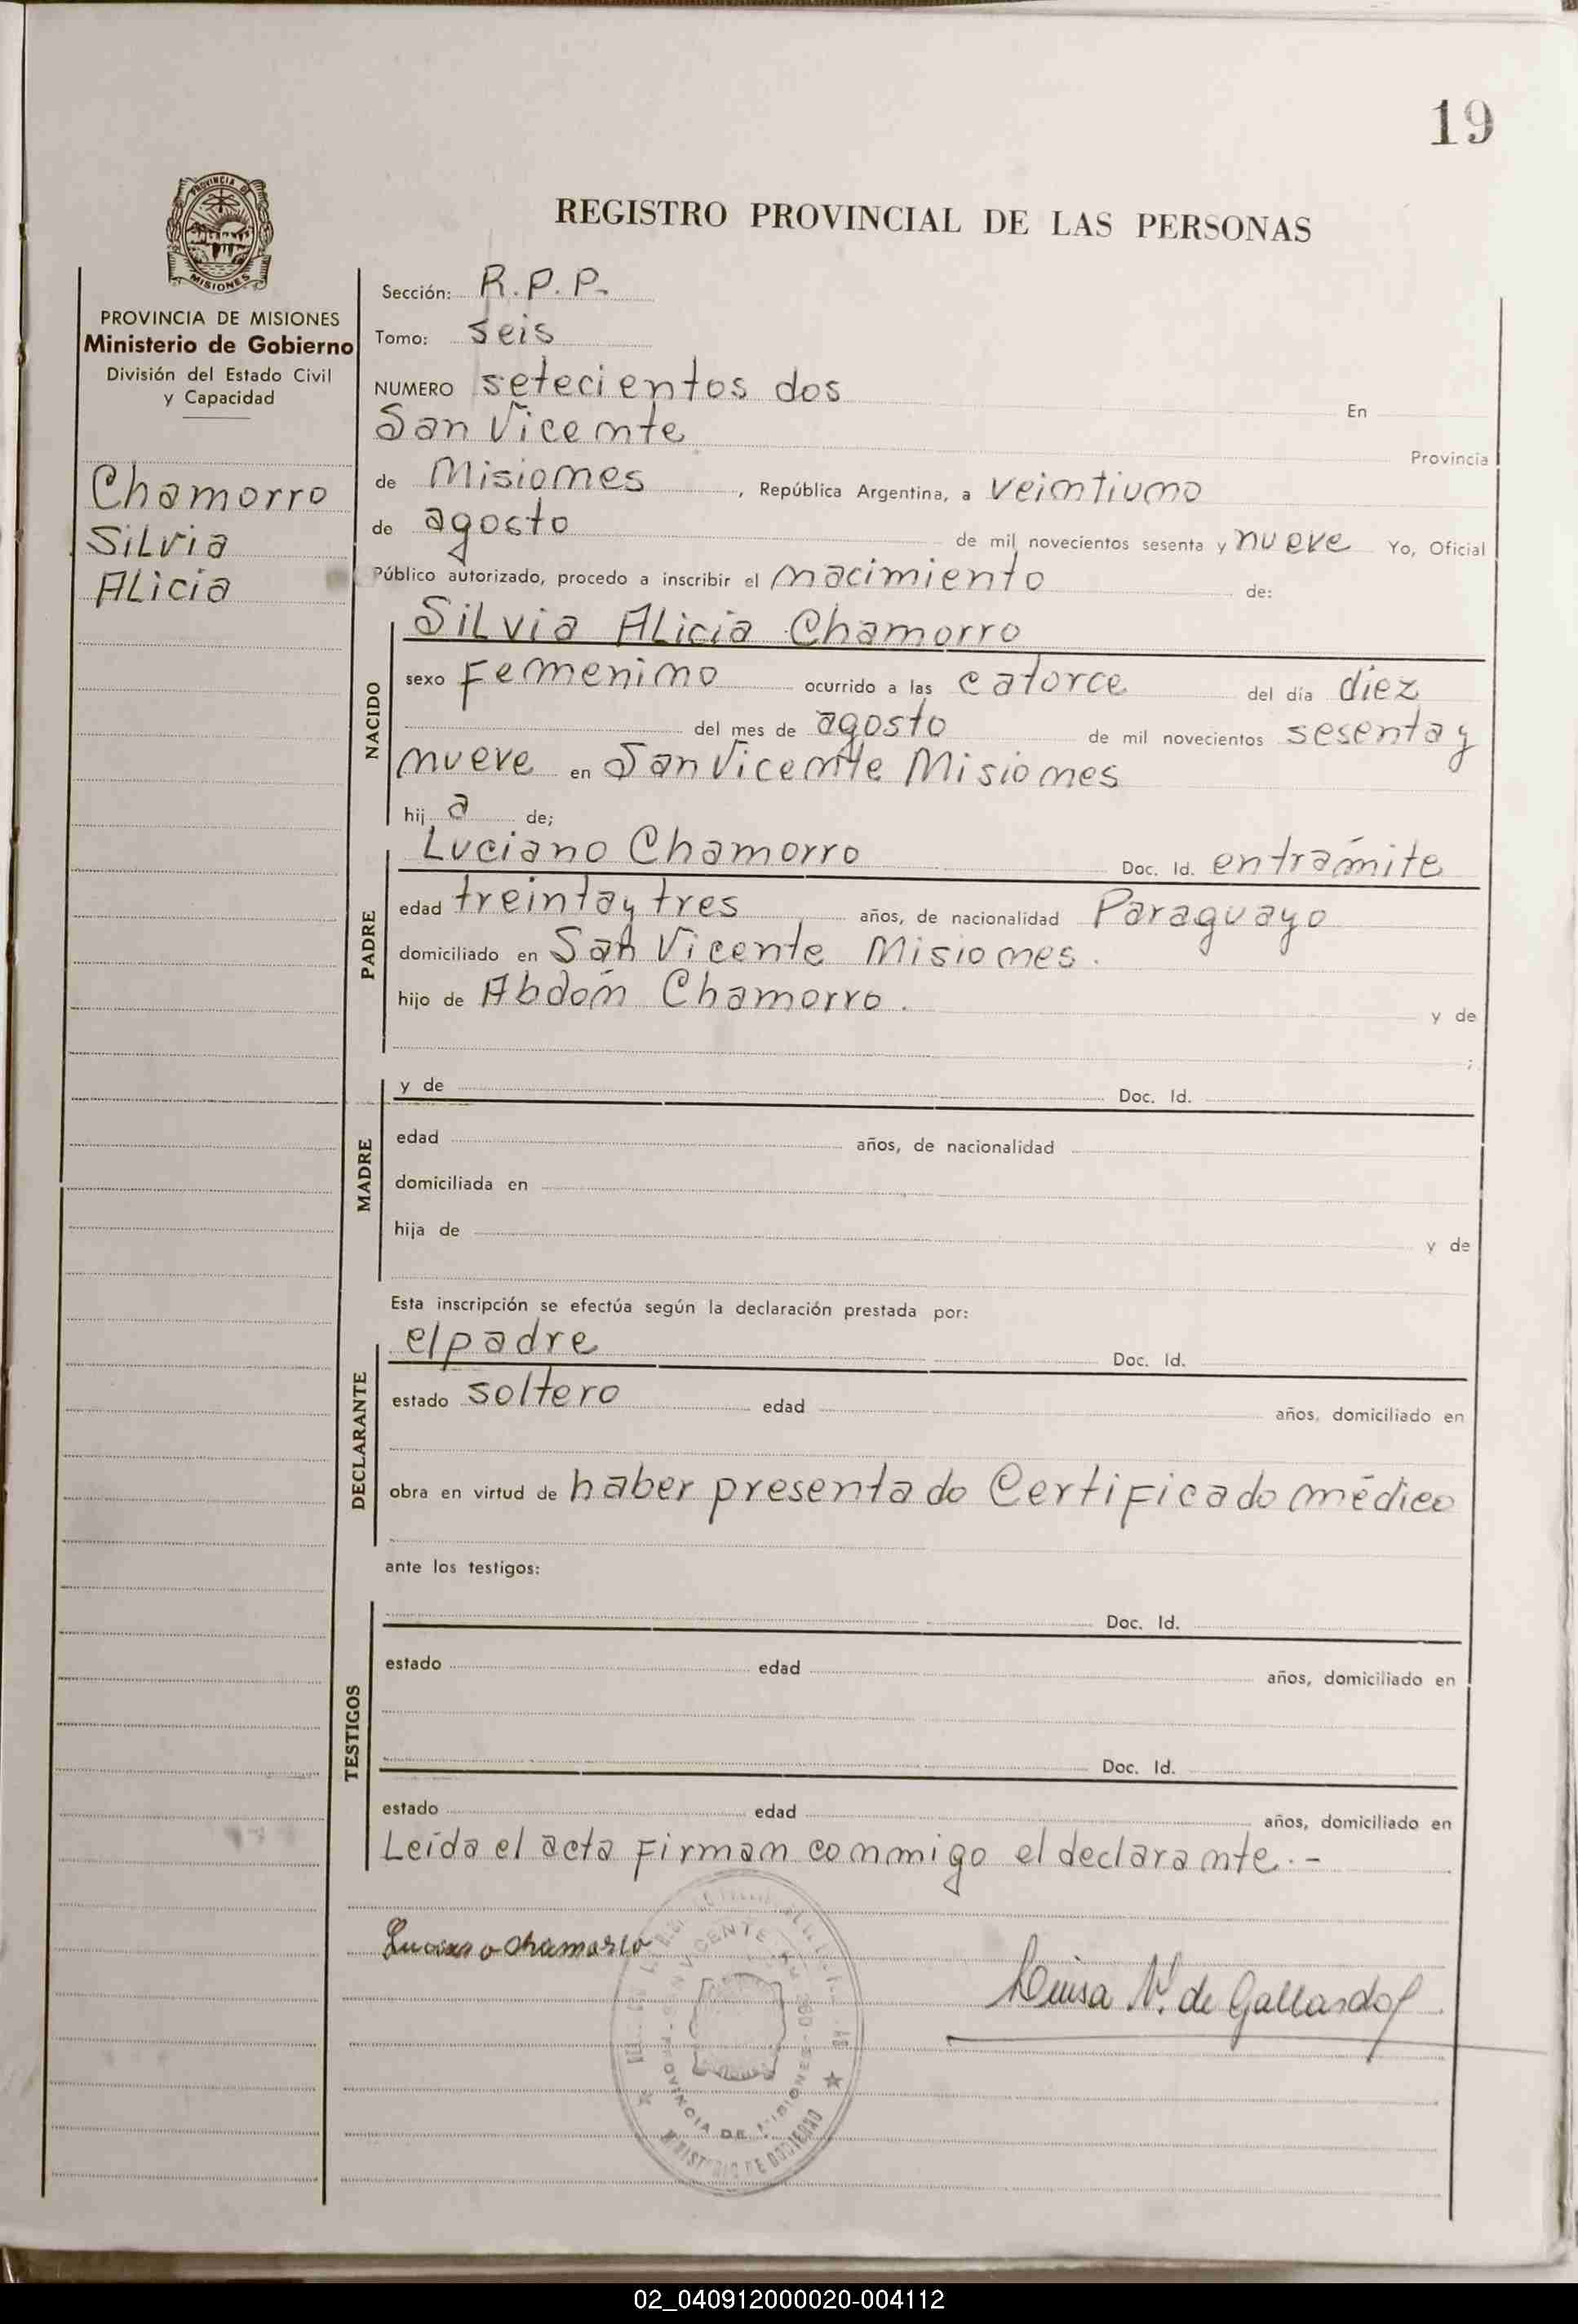 19
PROVINCIA DE
MISIONES
REGISTRO PROVINCIAL DE LAS PERSONAS
PROVINCIA DE MISIONES
Ministerio de Gobierno
División del Estado Civil
y Capacidad
Chamorro
Silvia
Alicia
Sección: R.P.P.
Tomo: seis
NUMERO setecientos dos En
San Vicente Provincia
de Misiones, República Argentina, a veintiuno
de agosto de mil novecientos sesenta y nueve Yo, Oficial
Público autorizado, procedo a inscribir el nacimiento de:
NACIDO
Silvia Alicia Chamorro
sexo Femenino ocurrido a las catorce del día diez
del mes de agosto de mil novecientos sesenta y
nueve en San Vicente Misiones
hij a de;
PADRE
Luciano Chamorro Doc. Id. en trámite
edad treinta y tres años, de nacionalidad Paraguayo
domiciliado en San Vicente Misiones.
hijo de Abdón Chamorro. y de
;
MADRE
y de Doc. Id.
edad años, de nacionalidad
domiciliada en
hija de y de
Esta inscripción se efectúa según la declaración prestada por:
DECLARANTE
el padre Doc. Id.
estado soltero edad años, domiciliado en
obra en virtud de haber presentado Certificado médico
ante los testigos:
TESTIGOS
Doc. Id.
estado edad años, domiciliado en
Doc. Id.
estado edad años, domiciliado en
Leída el acta firman conmigo el declarante.-
Luciano chamorro
Luisa N. de Gallardo
VICENTE
PROVINCIA DE MISIONES
MINISTERIO DE GOBIERNO
02_040912000020-004112